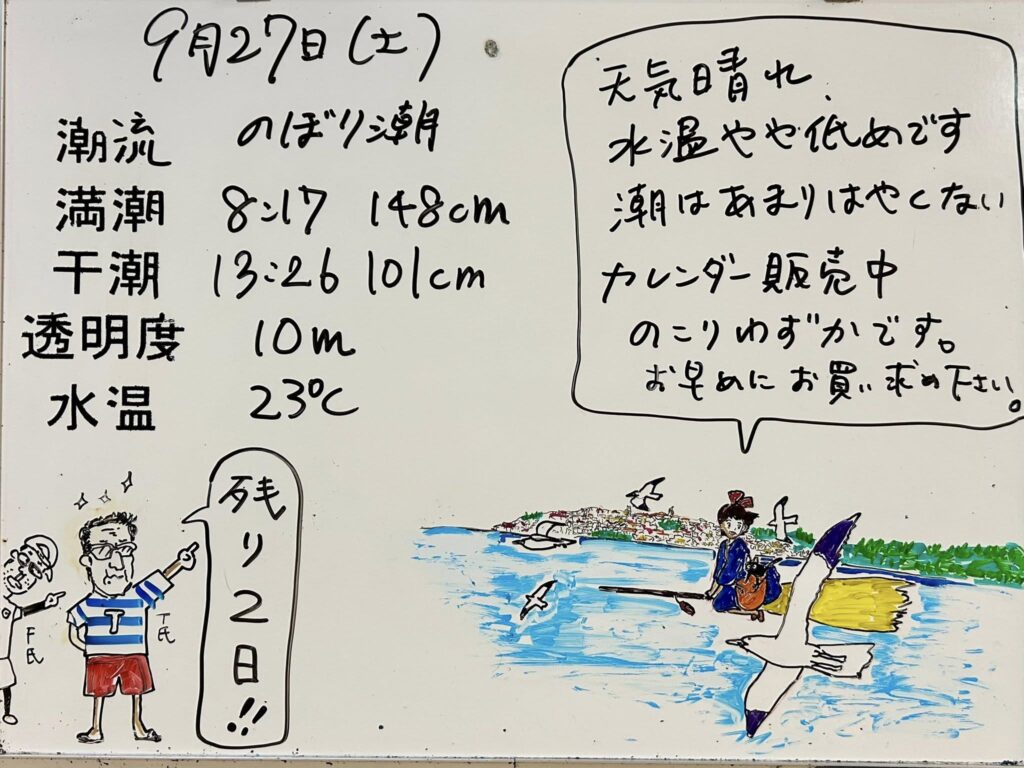 9月27日(土)
潮流 のぼり潮
満潮 8:17 148cm
干潮 13:26 101cm
透明度 10m
水温 23℃
天気晴れ、
水温やや低めです
潮はあまりはやくない
カレンダー販売中
のこりわずかです。
お早めにお買い求め下さい。
残り2日!!
T
T氏
F氏